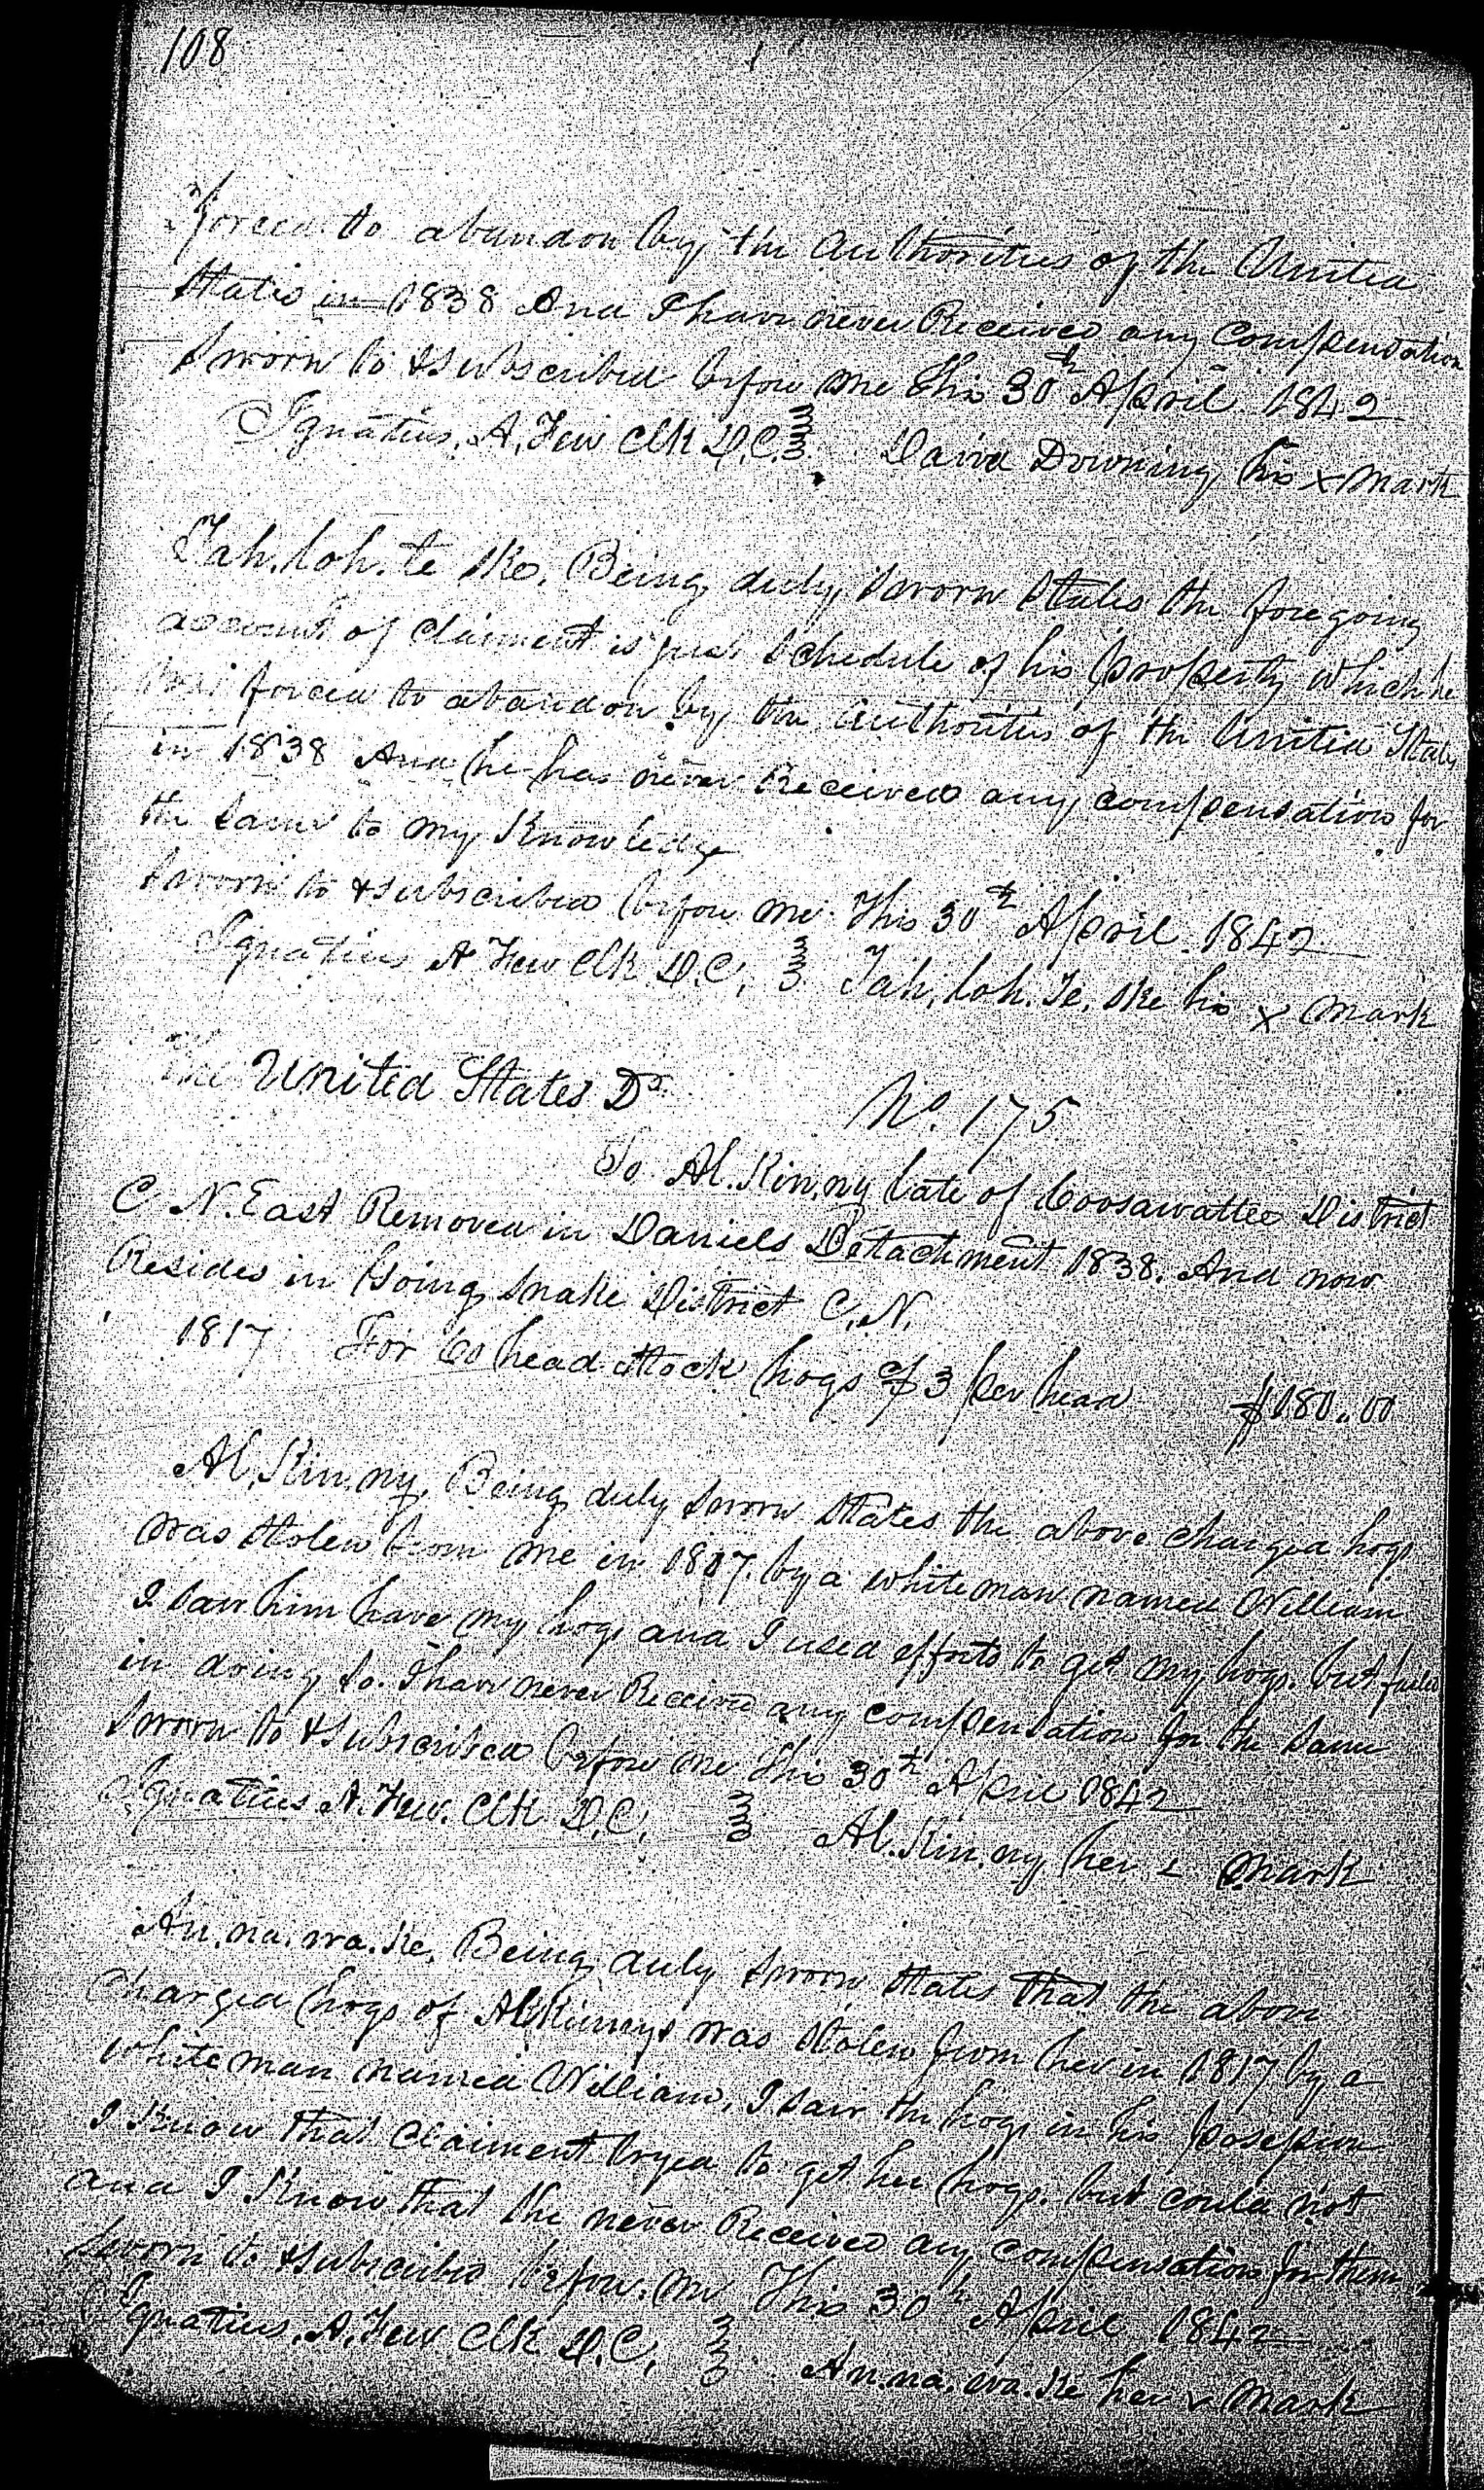 108
forced to abandon by the authorities of the United
States in 1838 And I have never Received any compensation
Sworn to & subscribed before me this 30th April 1842
Ignatius. A. Few Clk D.C. David Downing his x mark
Tah. loh. te ske. Being duly sworn States the foregoing
account of claiment is just schedule of his property which he
was forced to abandon by the authorities of the United States
in 1838 And he has never Received any compensation for
the same to my Knowledge
Sworn to & subscribed before me This 30th April 1842
Ignatius A Few Clk D.C. Tah. loh. Te. ske his x mark
The United States Dr No. 175
To Al. Kin. ny late of Coosawattee District
C N. East Removed in Daniels Detachment 1838. And now
Resides in Going Snake District C. N.
1817 For 60 head stock hogs @ $3 per head $180.00
Al. Kin. ny. Being duly sworn States the above charged hogs
was stolen from me in 1817. by a white man named William
I saw him have my hogs and I used efforts to get my hogs. but failed
in doing so. I have never Received any compensation for the same
Sworn to & subscribed before me this 30th April 1842
Ignatius A. Few. Clk D.C. Al. Kin. ny her x mark
An. na. wa. ke. Being duly sworn states That the above
charged hogs of Alkinnys was stolen from her in 1817 by a
white man named William, I saw the hogs in his possession
I Know that claiment tryed to get her hogs. but could not
and I Know that she never Received any compensation for them
Sworn to & subscribed before me This 30th April 1842
Ignatius. A. Few Clk D.C. An. na. wa. ke her x mark